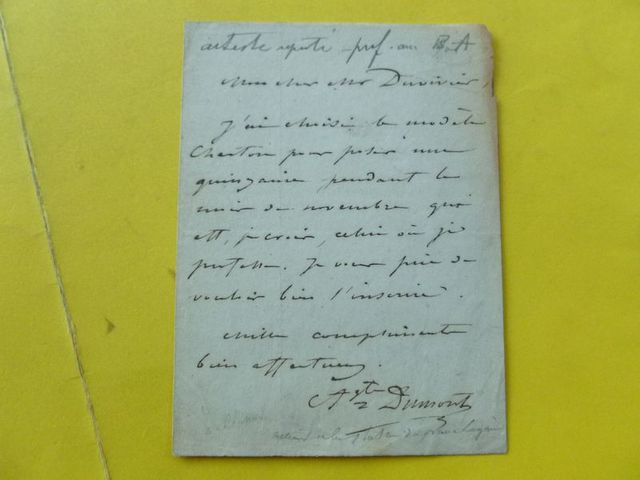 artiste réputé - prof. aux B-A
Mon cher Mr Duvivier,
J'ai choisi le modèle
Charton pour poser une
quinzaine pendant le
mois de novembre qui
est, je crois, celui où je
professe. Je vous prie de
vouloir bien l'inscrire.
Mille compliments
bien affectueux.
Agte Dumont
de la